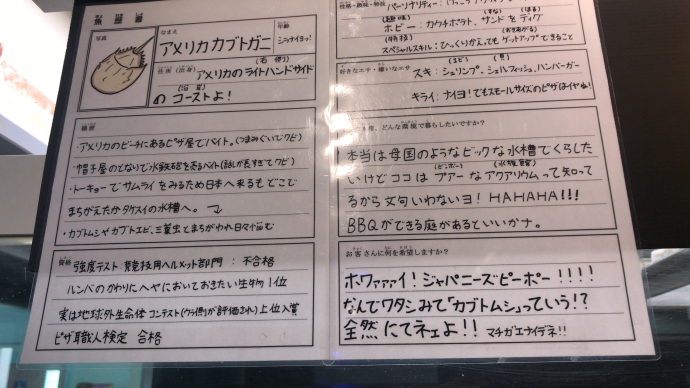 写真
なまえ
アメリカ カブトガニ
年齢
シラナイヨッ!
住所(沿岸)
(右側)
アメリカのライトハンドサイド
(沿岸)
の コーストよ!
・アメリカのビーチにあるピザ屋でバイト。(つまみぐいでクビ)
・帽子屋のとなりで水鉄砲を売るバイト(話しが長すぎてクビ)
・トーキョーでサムライをみるため日本へ来るもどこで
まちがえたかタケスイの水槽へ。
・カブトムシやカブトエビ、三葉虫とまちがわれ日々悩む
資格
強度テスト 競技用ヘルメット部門 : 不合格
ルンバのかわりにヘヤにおいておきたい生物 1位
実は地球外生命体コンテスト(ウラ側が評価され)上位入賞
ピザ職人検定 合格
パーソナリティー:
(趣味)
(すな)
(ほる)
ホビー: カウチポテト、サンドをディグ
(特技)
(おきあがる)
スペシャルスキル:ひっくりかえってもゲットアップできること
好きなエサ・嫌いなエサ
(エビ)
(貝)
スキ:シュリンプ、シェルフィッシュ、ハンバーガー
キライ:ナイヨ!でもスモールサイズのピザはイヤね!
どんな環境で暮らしたいですか?
本当は母国のようなビックな水槽でくらした
(ビンボー)
(水族館)
いけどココはプアーなアクアリウムって知って
るから文句いわないヨ!HAHAHA!!!
BBQができる庭があるといいカナ。
お客さんに何を希望しますか?
ホワァァァイ!ジャパニーズピーポー!!!!
なんでワタシみて「カブトムシ」っていう!?
全然にてネェよ!! マチガエナイデネ!!